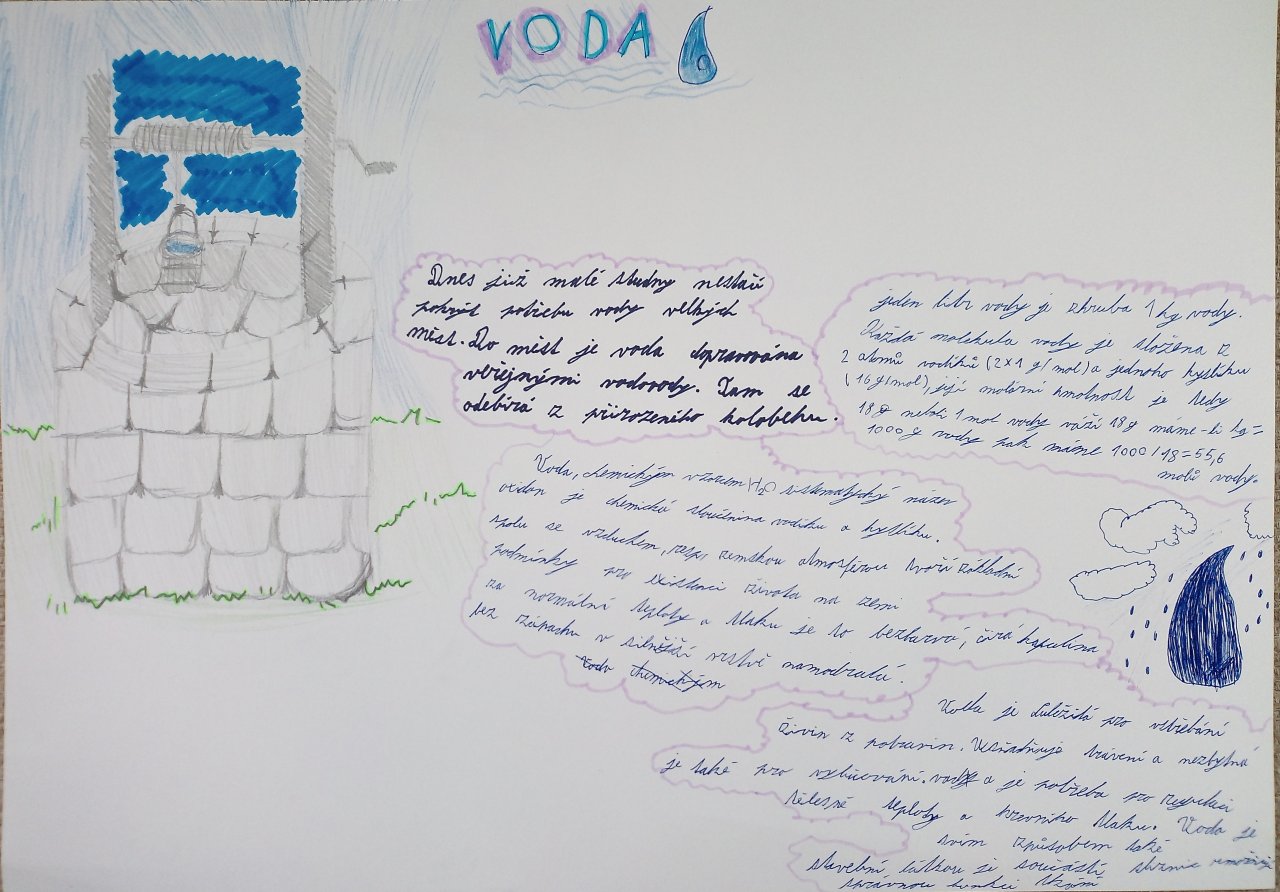 VODA
Dnes již malé studny nestačí
pokrýt potřebu vody velkých
měst. Do měst je voda dopravována
veřejnými vodovody. Tam se
odebírá z přirozeného koloběhu.
jeden litr vody je zhruba 1 kg vody.
Každá molekula vody je složena z
2 atomů vodíků (2x1 g/mol) a jednoho kyslíku
(16g/mol), její molární hmotnost je tedy
18g neboli 1 mol vody váží 18g máme-li kg=
1000g vody pak máme 1000/18=55,6
molů vody.
Voda, chemickým vzorcem H2O systematycký název
oxidan je chemická sloučenina vodíku a kyslíku.
spolu se vzduchem, resp. zemskou atmosférou tvoří základní
podmínky pro existenci života na zemi
za normální teploty a tlaku je to bezbarvá, čirá kapalina
bez zápachu v silnější vrstvě namodralá.
Voda chemickým
Voda je důležitá pro vstřebání
živin z potravin. Usnadňuje trávení a nezbytná
je také pro vylučování. a je potřeba pro regulaci
tělesné teploty a krevního tlaku. Voda je
svím způsobem také
stavební látkou je součástí
správnou funkci